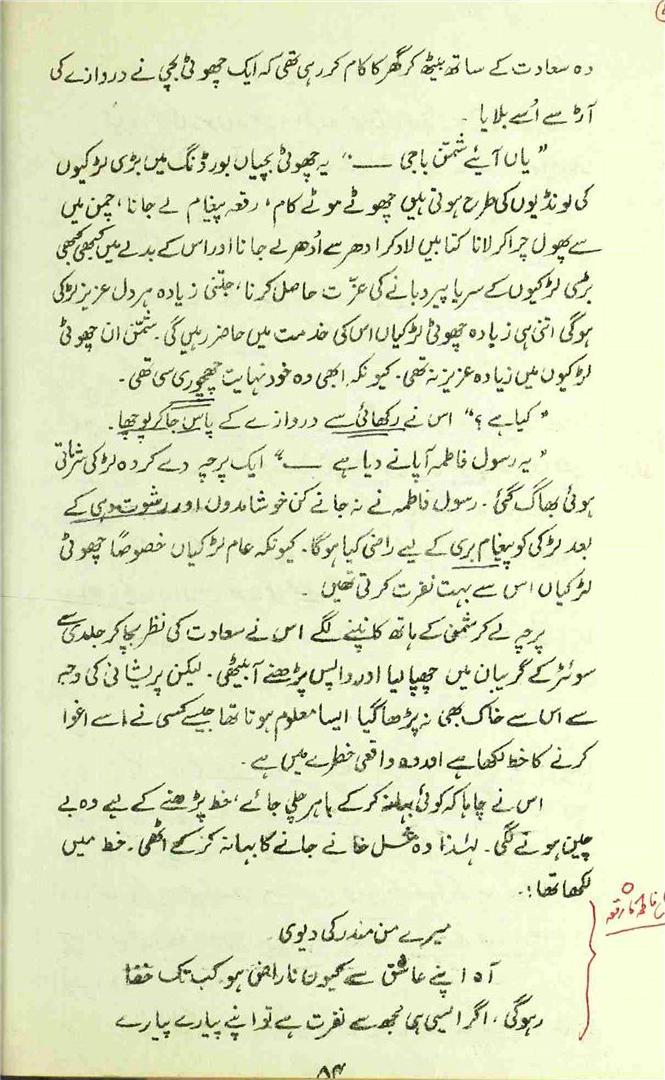 وہ سعادت کے ساتھ بیٹھ کر گھر کا کام کر رہی تھی کہ ایک چھوٹی بچی نے دروازے کی
آڑ سے اُسے بلایا ۔
”یاں آیئے شمّن باجی ——“ یہ چھوٹی بچیاں بورڈنگ میں بڑی لڑکیوں
کی لونڈیوں کی طرح ہوتی ہیں چھوٹے موٹے کام، رقعہ پیغام لے جانا، چمن میں
سے پھول چرا کر لانا کتابیں لاد کر ادھر سے اُدھر لے جانا اور اس کے بدلے میں کبھی کبھی
بڑی لڑکیوں کے سر یا پیر دبانے کی عزّت حاصل کرنا، جتنی زیادہ ہر دل عزیز لڑکی
ہوگی اتنی ہی زیادہ چھوٹی لڑکیاں اس کی خدمت میں حاضر رہیں گی۔ شمّن ان چھوٹی
لڑکیوں میں زیادہ عزیز نہ تھی۔ کیونکہ ابھی وہ خود نہایت چھچوری سی تھی۔
”کیا ہے؟“ اس نے رکھائی سے دروازے کے پاس جا کر پوچھا۔
”یہ رسول فاطمہ آپا نے دیا ہے ——“ ایک پرچہ دے کر وہ لڑکی شرماتی
ہوئی بھاگ گئی۔ رسول فاطمہ نے نہ جانے کن خوشامدوں اور رشوت دہی کے
بعد لڑکی کو پیغام بری کے لیے راضی کیا ہوگا۔ کیونکہ عام لڑکیاں خصوصاً چھوٹی
لڑکیاں اس سے بہت نفرت کرتی تھیں۔
پرچہ لے کر شمن کے ہاتھ کانپنے لگے اس نے سعادت کی نظر بچا کر جلدی سے
سوئٹر کے گریبان میں چھپا لیا اور واپس پڑھنے آ بیٹھی۔ لیکن پریشانی کی وجہ
سے اس سے خاک بھی نہ پڑھا گیا ایسا معلوم ہوتا تھا جیسے کسی نے اسے اغوا
کرنے کا خط لکھا ہے اور وہ واقعی خطرے میں ہے۔
اس نے چاہا کہ کوئی بہانہ کر کے باہر چلی جائے، خط پڑھنے کے لیے وہ بے
چین ہونے لگی۔ لہٰذا وہ غسل خانے جانے کا بہانہ کر کے اٹھی۔ خط میں
لکھا تھا:۔
فاطمہ کا رقعہ
میرے من مندر کی دیوی
آہ اپنے عاشق سے کیوں ناراض ہو کب تک خفا
رہوگی، اگر ایسی ہی مجھ سے نفرت ہے تو اپنے پیارے پیارے
۸۴